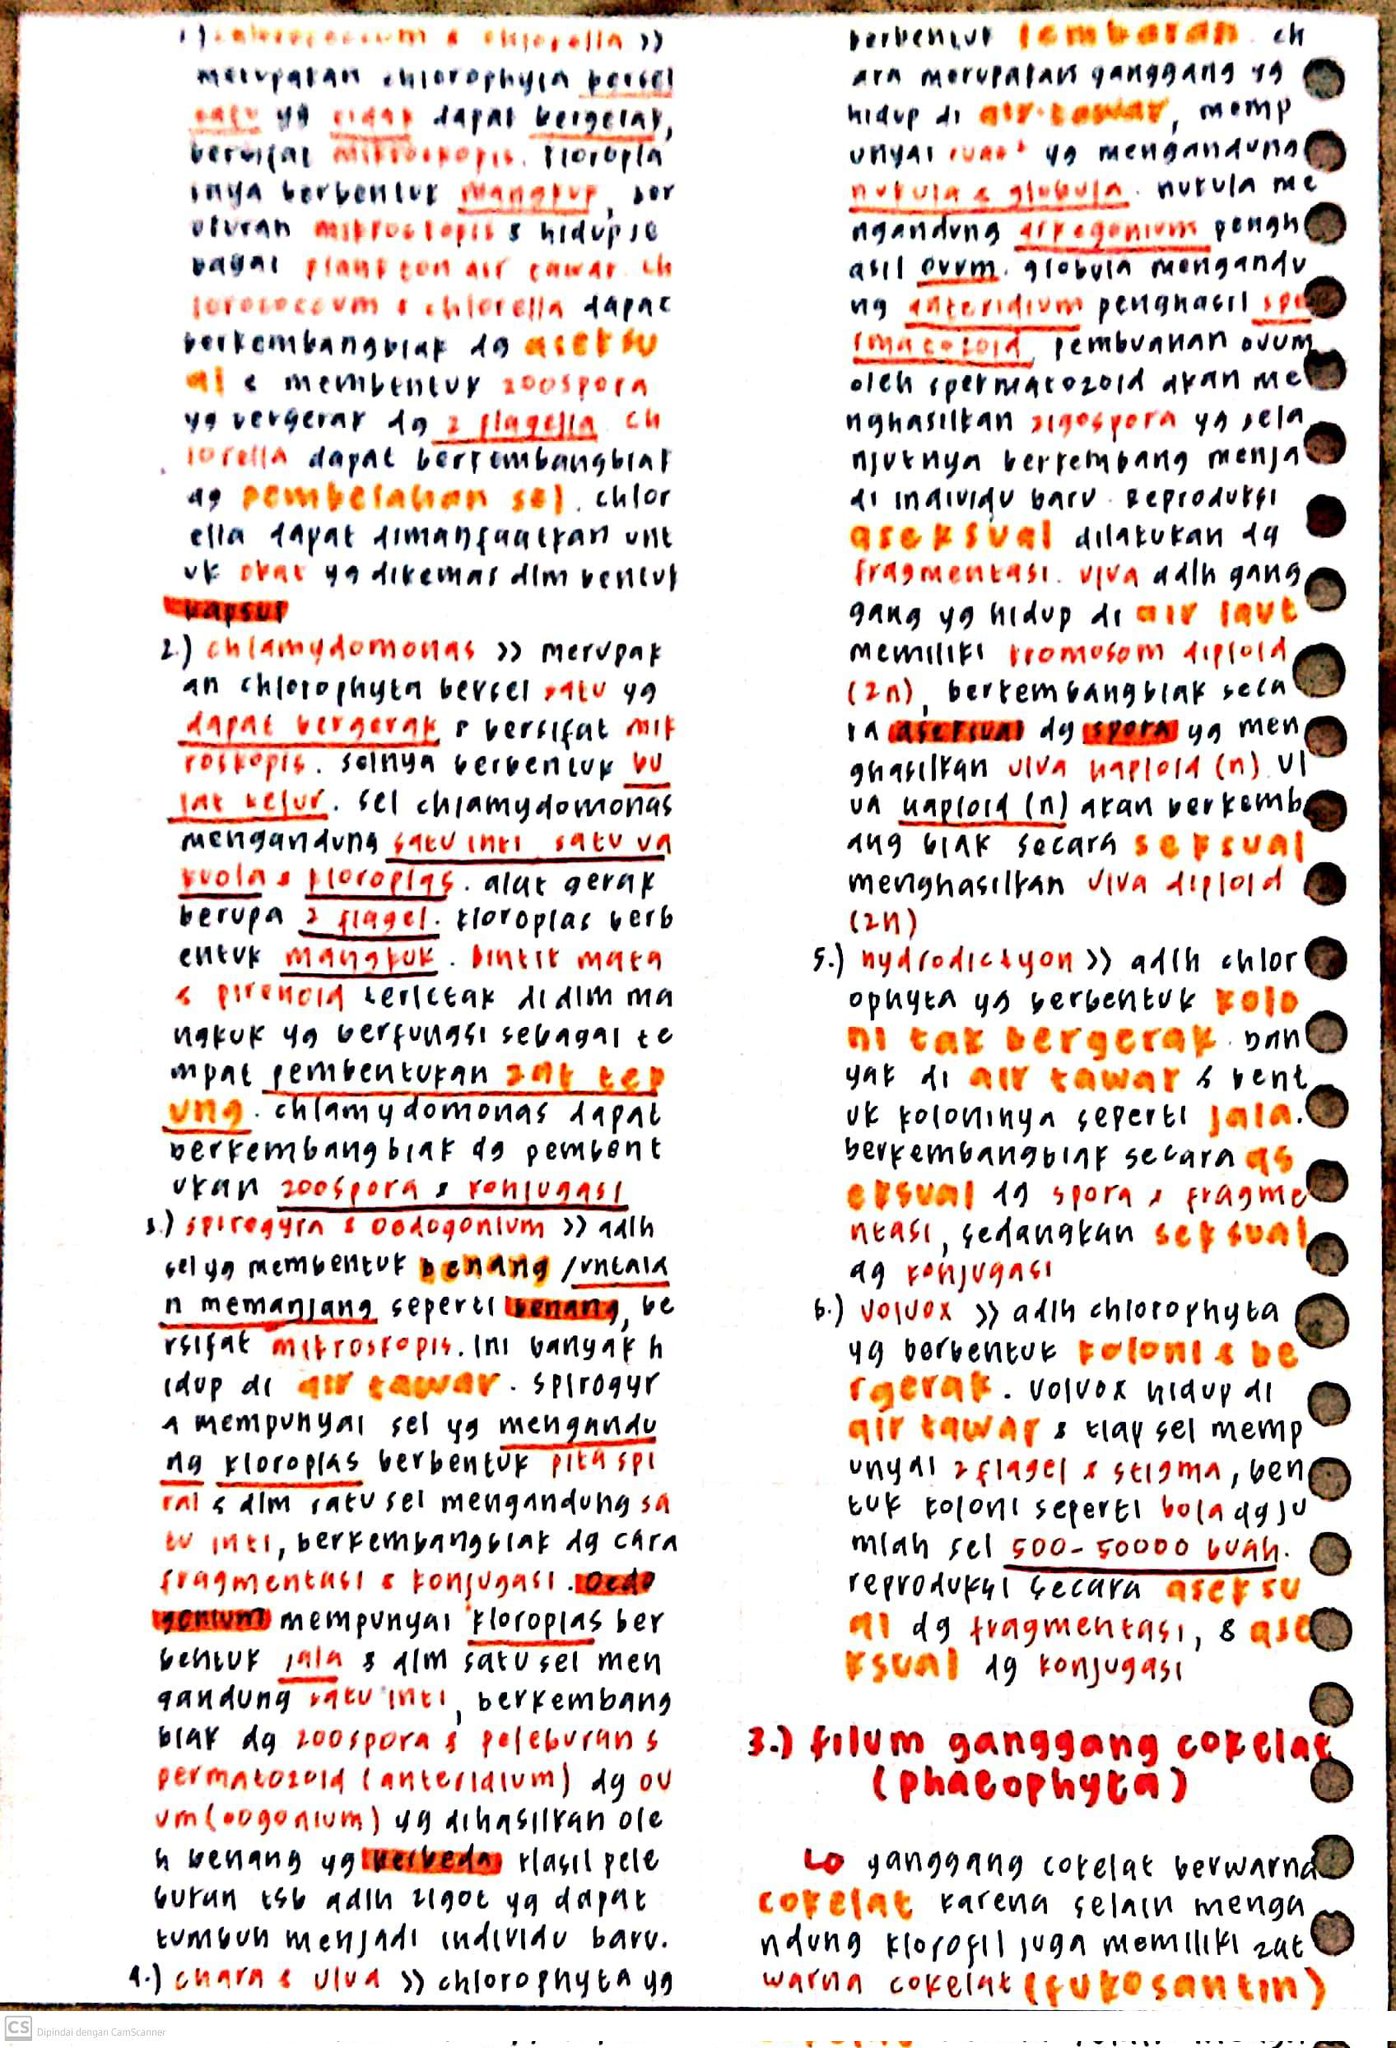 1.) chlorococcum & chlorella >>
merupakan chlorophyta bersel
satu yg tidak dapat bergerak,
bersifat mikroskopis. kloropla
snya berbentuk mangkup, ber
ukuran mikroskopis & hidup se
bagai plankton air tawar. Ch
lorococcum & chlorella dapat
berkembangbiak dg aseksu
al & membentuk zoospora
yg bergerak dg 2 flagella. Ch
lorella dapat berkembangbiak
dg pembelahan sel. chlor
ella dapat dimanfaatkan unt
uk obat yg dikemas dlm bentuk
kapsul
2.) chlamydomonas >> merupak
an chlorophyta bersel satu yg
dapat bergerak & bersifat mik
roskopis. selnya berbentuk bu
lat telur. sel chlamydomonas
mengandung satu inti, satu va
kuola & kloroplas. alat gerak
berupa 2 flagel. kloroplas berb
entuk mangkuk. bintik mata
& pirenoid terletak didlm ma
ngkuk yg berfungsi sebagai te
mpat pembentukan zat tep
ung. chlamydomonas dapat
berkembangbiak dg pembent
ukan zoospora & konjugasi
3.) spirogyra & oedogonium >> adlh
sel yg membentuk benang /untaia
n memanjang seperti benang, be
rsifat mikroskopis. ini banyak h
idup di air tawar. spirogyr
a mempunyai sel yg mengandu
ng kloroplas berbentuk pita spi
ral & dlm satu sel mengandung sa
tu inti, berkembangbiak dg cara
fragmentasi & konjugasi. Oedo
gonium mempunyai kloroplas ber
bentuk jala & dlm satu sel men
gandung satu inti, berkembang
biak dg zoospora & peleburan s
permatozoid (anteridium) dg ov
um (oogonium) yg dihasilkan ole
h benang yg berbeda. Hasil pele
buran tsb adlh zigot yg dapat
tumbuh menjadi individu baru.
4.) chara & ulva >> chlorophyta yg
berbentuk lembaran. ch
ara merupakan ganggang yg
hidup di air tawar, memp
unyai ruas² yg mengandung
nukula & globula. nukula me
ngandung arkegonium pengh
asil ovum. globula mengandu
ng anteridium penghasil spe
rmatozoid. pembuahan ovum
oleh spermatozoid akan me
nghasilkan zigospora yg sela
njutnya berkembang menja
di individu baru. Reproduksi
aseksual dilakukan dg
fragmentasi. ulva adlh gang
gang yg hidup di air laut
memiliki kromosom diploid
(2n), berkembangbiak seca
ra aseksual dg spora yg men
ghasilkan ulva haploid (n). ul
va haploid (n) akan berkemb
ang biak secara seksual
menghasilkan ulva diploid
(2n)
5.) hydrodictyon >> adlh chlor
ophyta yg berbentuk kolo
ni tak bergerak. ban
yak di air tawar & bent
uk koloninya seperti jala.
berkembangbiak secara as
eksual dg spora & fragme
ntasi, sedangkan seksual
dg konjugasi
6.) volvox >> adlh chlorophyta
yg berbentuk koloni & be
rgerak. volvox hidup di
air tawar & tiap sel memp
unyai 2 flagel & stigma, ben
tuk koloni seperti bola dg ju
mlah sel 500-50000 buah.
reproduksi secara aseksu
al dg fragmentasi, & ase
ksual dg konjugasi
3.) filum ganggang cokelat
(phaeophyta)
ganggang cokelat berwarna
cokelat karena selain menga
ndung klorofil juga memiliki zat
warna cokelat (fukosantin)
CS Dipindai dengan CamScanner